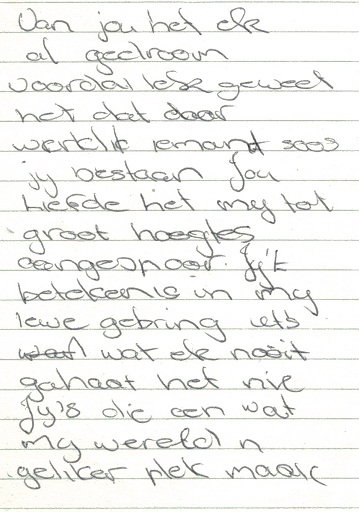 Van jou het ek
al gedroom
voordat ek geweet
het dat daar
werklik iemand soos
jy bestaan Jou
liefde het my tot
groot hoogtes
aangespoor. Jy't
betekenis in my
lewe gebring iets
wat ek nooit
gehaat het nie
Jy's die een wat
my wereld n
geliker plek maak